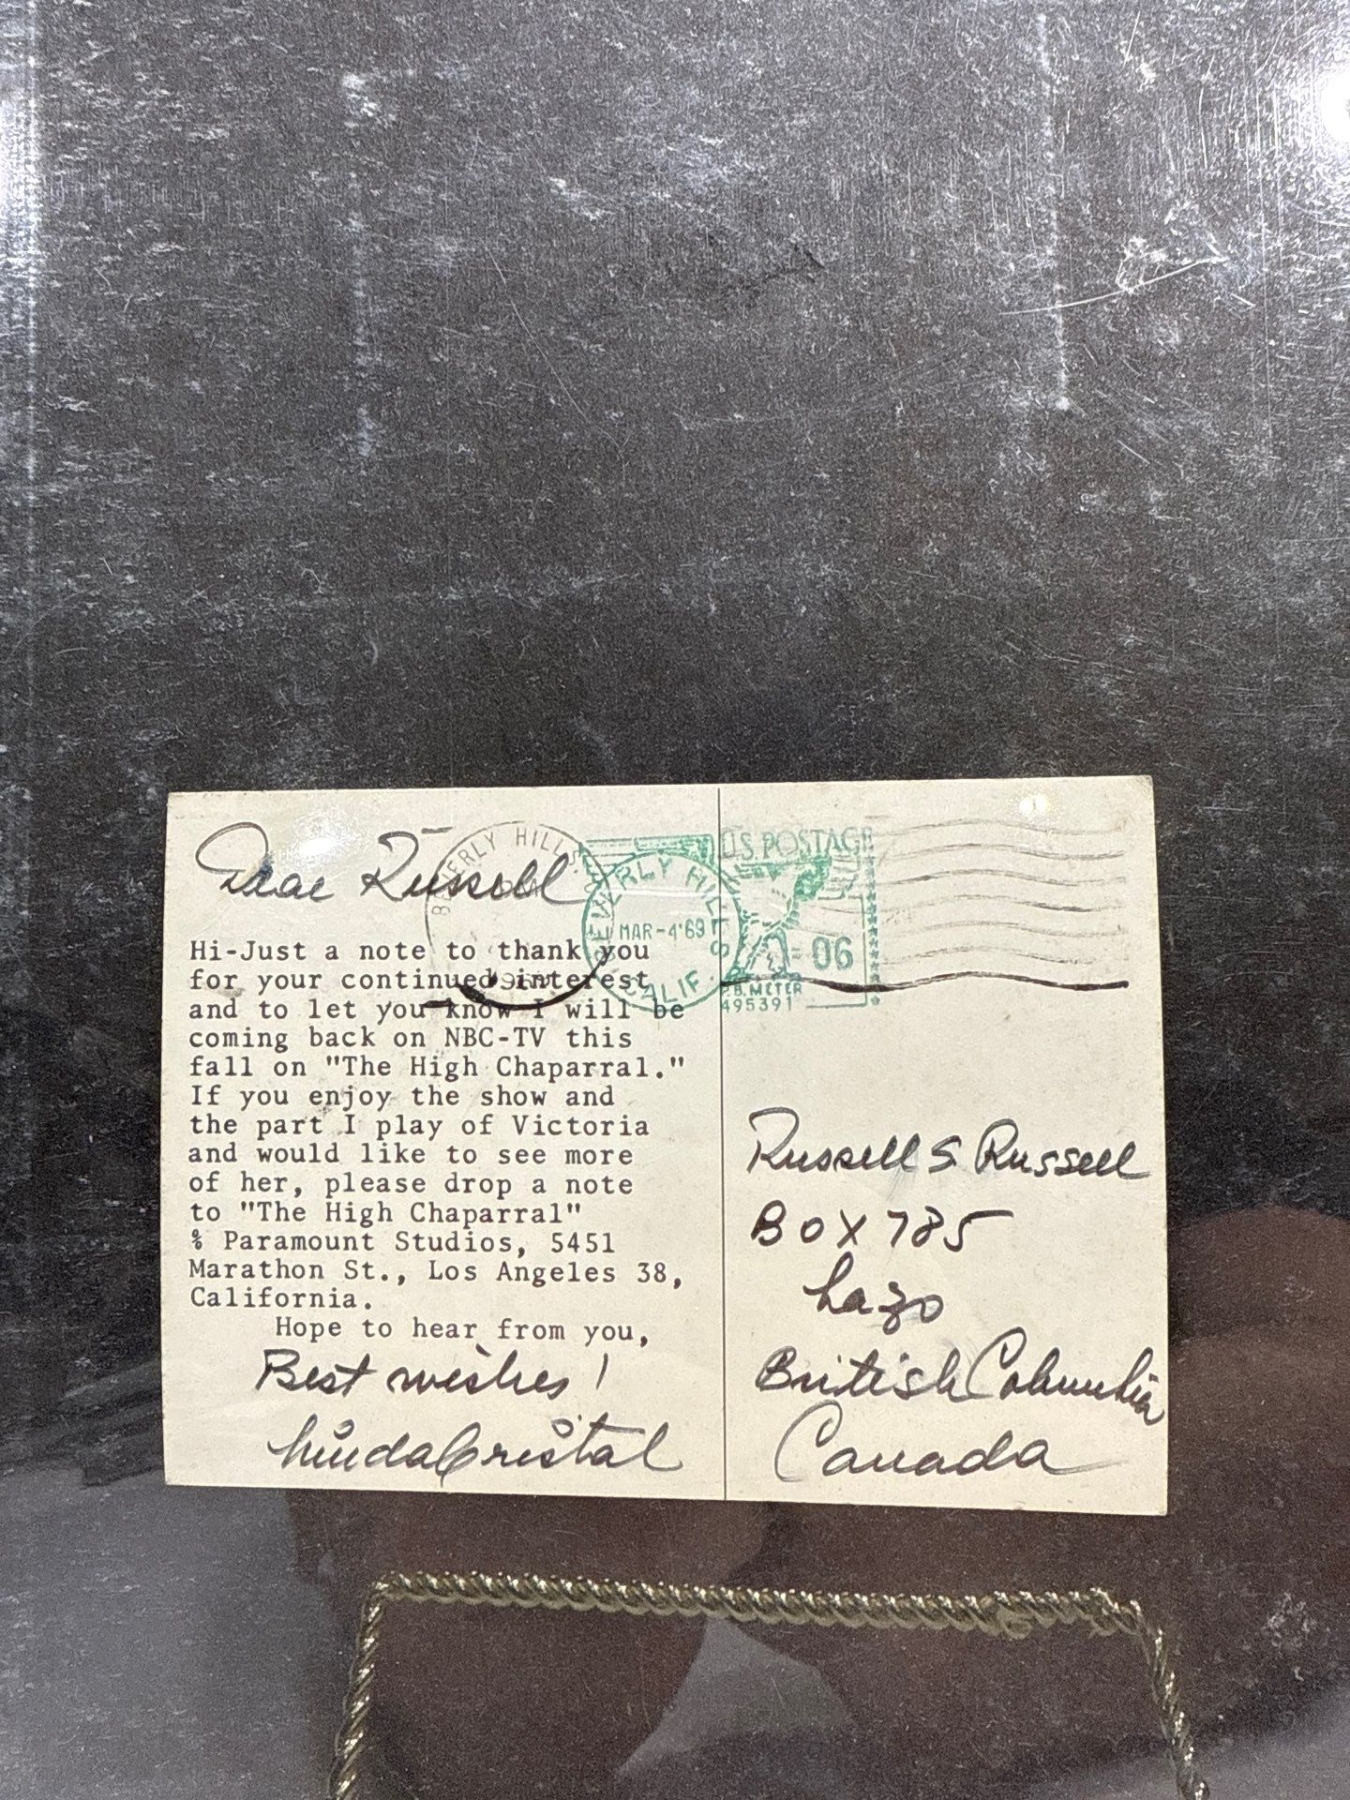 Dear Russell
Hi-Just a note to thank you
for your continued interest
and to let you know I will be
coming back on NBC-TV this
fall on "The High Chaparral."
If you enjoy the show and
the part I play of Victoria
and would like to see more
of her, please drop a note
to "The High Chaparral"
% Paramount Studios, 5451
Marathon St., Los Angeles 38,
California.
Hope to hear from you,
Best wishes!
Linda Cristal
BEVERLY HILLS
BEVERLY HILLS
MAR-4'69
CALIF.
U.S. POSTAGE
06
P.B. METER
495391
Russell S Russell
BOX 785
Lazo
British Columbia
Canada